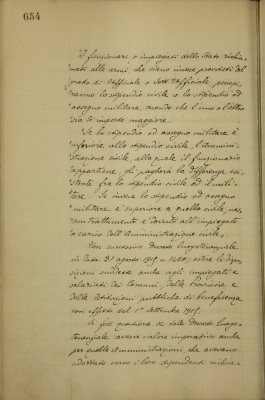 654
I funzionari o impiegati dello Stato richia-
mati alle armi, che siano invece provvisti del
grado di ufficiale o sott'ufficiale, percepi-
ranno lo stipendio civile o lo stipendio od
assegno militare, secondo che l'uno o l'altro
sia di importo maggiore.
Se lo stipendio od assegno militare è
inferiore allo stipendio civile, l'Ammini-
strazione civile, alla quale il funzionario
appartiene, gli pagherà la differenza esi-
stente fra lo stipendio civile ed il mili-
tare. Se invece lo stipendio od assegno
militare è superiore a quello civile, nes-
sun trattamento è dovuto all'impiegato
a carico dell'Amministrazione civile.
Con successivo Decreto luogotenenziale
in data 31 agosto 1915, n. 1420, estese le dispo-
sizioni suddette anche agli impiegati e
salariati dei Comuni, delle Provincie e
delle Istituzioni pubbliche di beneficenza
con effetto dal 1° settembre 1915.
Si fece questione se tale Decreto luogo-
tenenziale aveva valore imperativo anche
per quelle Amministrazioni, che avevano
adottato verso i loro dipendenti richia-